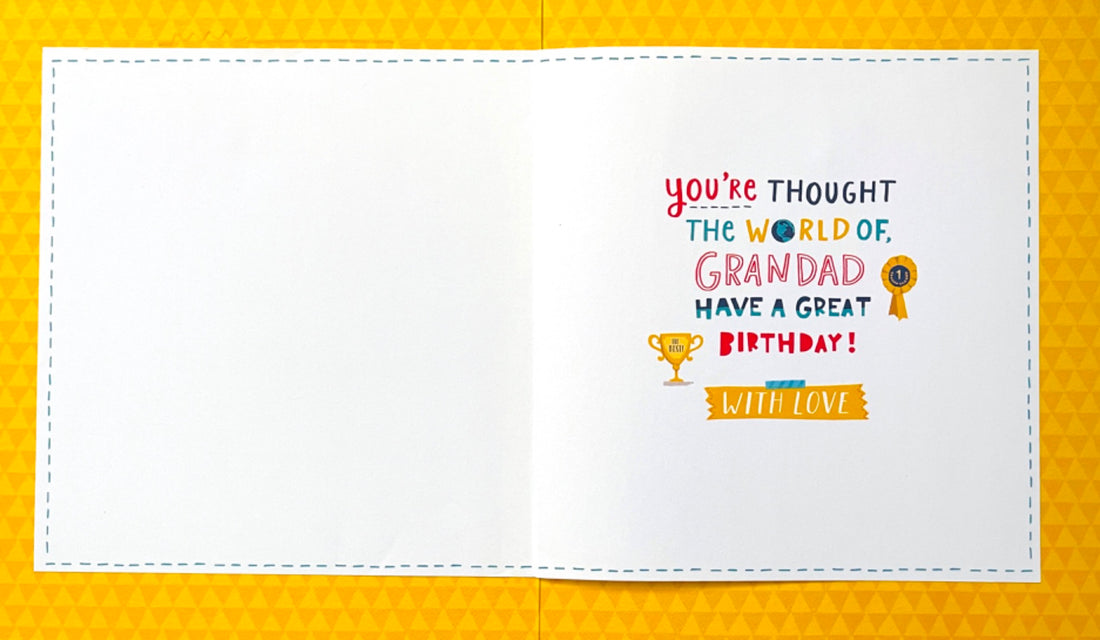 you're THOUGHT
THE WORLD OF,
GRANDAD
1
HAVE A GREAT
BIRTHDAY!
THE
BEST!
WITH LOVE